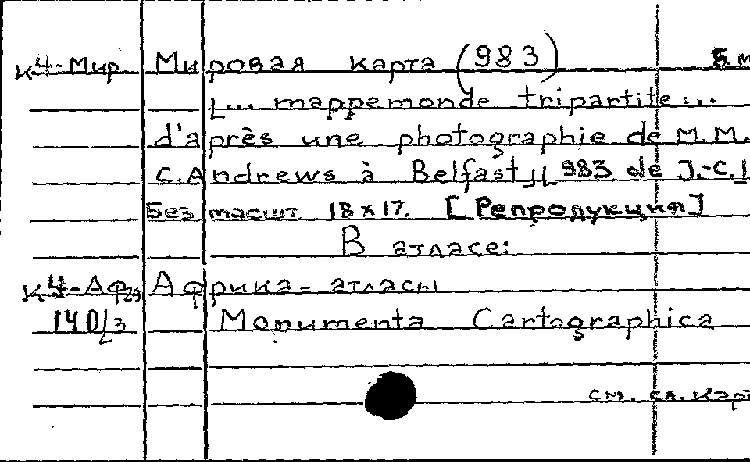 К4-Мир Мировая карта (983) Б.м
[... mappemonde tripartite...
d'après une photographie de M.M.
C. Andrews à Belfast, 983 de J.-C.]
Без масшт 18х17. [Репродукция]
В атласе:
К4-Афр Африка - атласы
140/3 Monumenta Cartographica
см. сл. карт